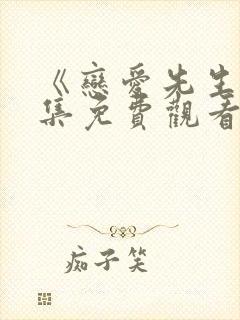 《戀愛先生
集免費觀看
痴子笑